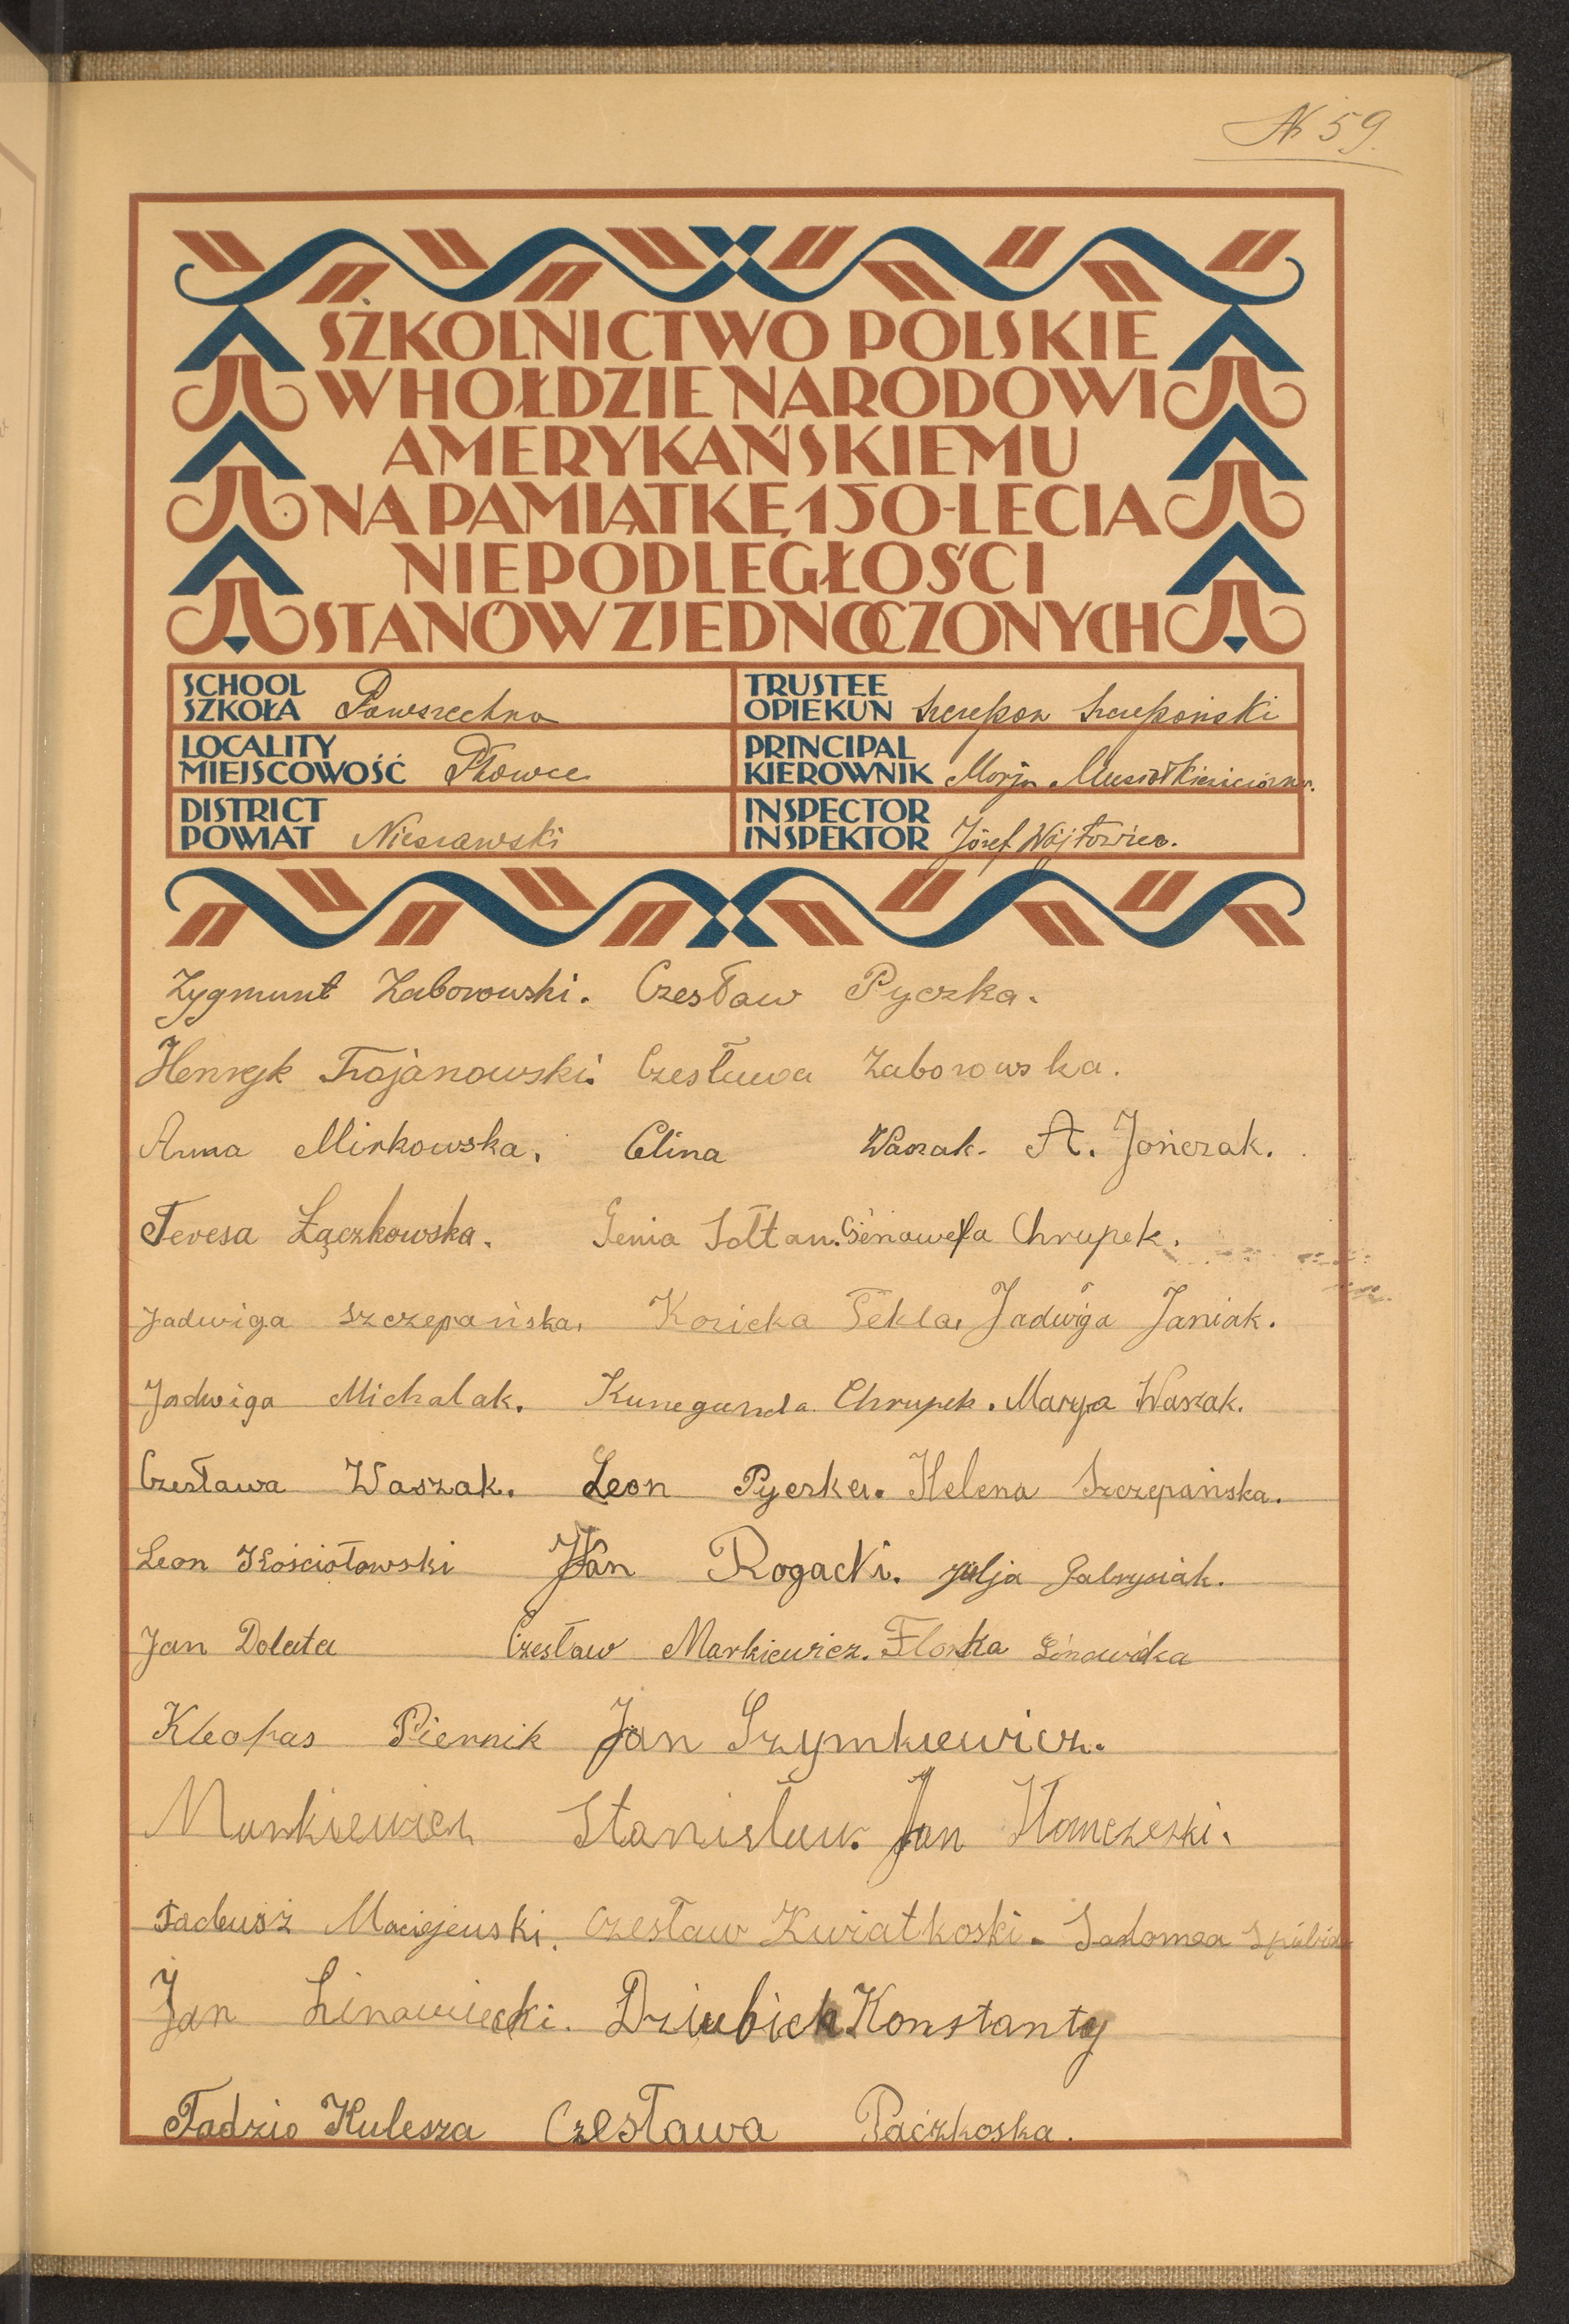 № 59.
SZKOLNICTWO POLSKIE
W HOŁDZIE NARODOWI
AMERYKAŃSKIEMU
NA PAMIĄTKĘ 150-LECIA
NIEPODLEGŁOŚCI
STANÓW ZJEDNOCZONYCH
SCHOOL
SZKOŁA Powszechna
TRUSTEE
OPIEKUN Szczepan Szczepański
LOCALITY
MIEJSCOWOŚĆ Płowce
PRINCIPAL
KIEROWNIK Marja
DISTRICT
POWIAT Nieszawski
INSPECTOR
INSPEKTOR Józef Wójtowicz.
Zygmunt Zaborowski. Czesław Pyczka.
Henryk Trojanowski. Czesława Zaborowska.
Anna Mirkowska. Elina Waszak. A. Jończak.
Teresa Łączkowska. Genia Sołtan. Genowefa Chrupek.
Jadwiga Szczepańska. Kozicka Tekla. Jadwiga Janiak.
Jadwiga Michalak. Kunegunda Chrupek. Marya Waszak.
Czesława Waszak. Leon Pyczka. Helena Szczepańska.
Leon Kościołowski Jan Rogacki. Julja Gabrysiak.
Jan Dolata Czesław Markiewicz. Florka
Kleofas Piernik Jan Szymkiewicz.
Markiewicz Stanisław. Jan
Tadeusz Maciejewski. Czesław Kwiatkoski.
Jan Linowiecki. Dziubich Konstanty
Tadzio Kulesza Czesława Paćzkoska.